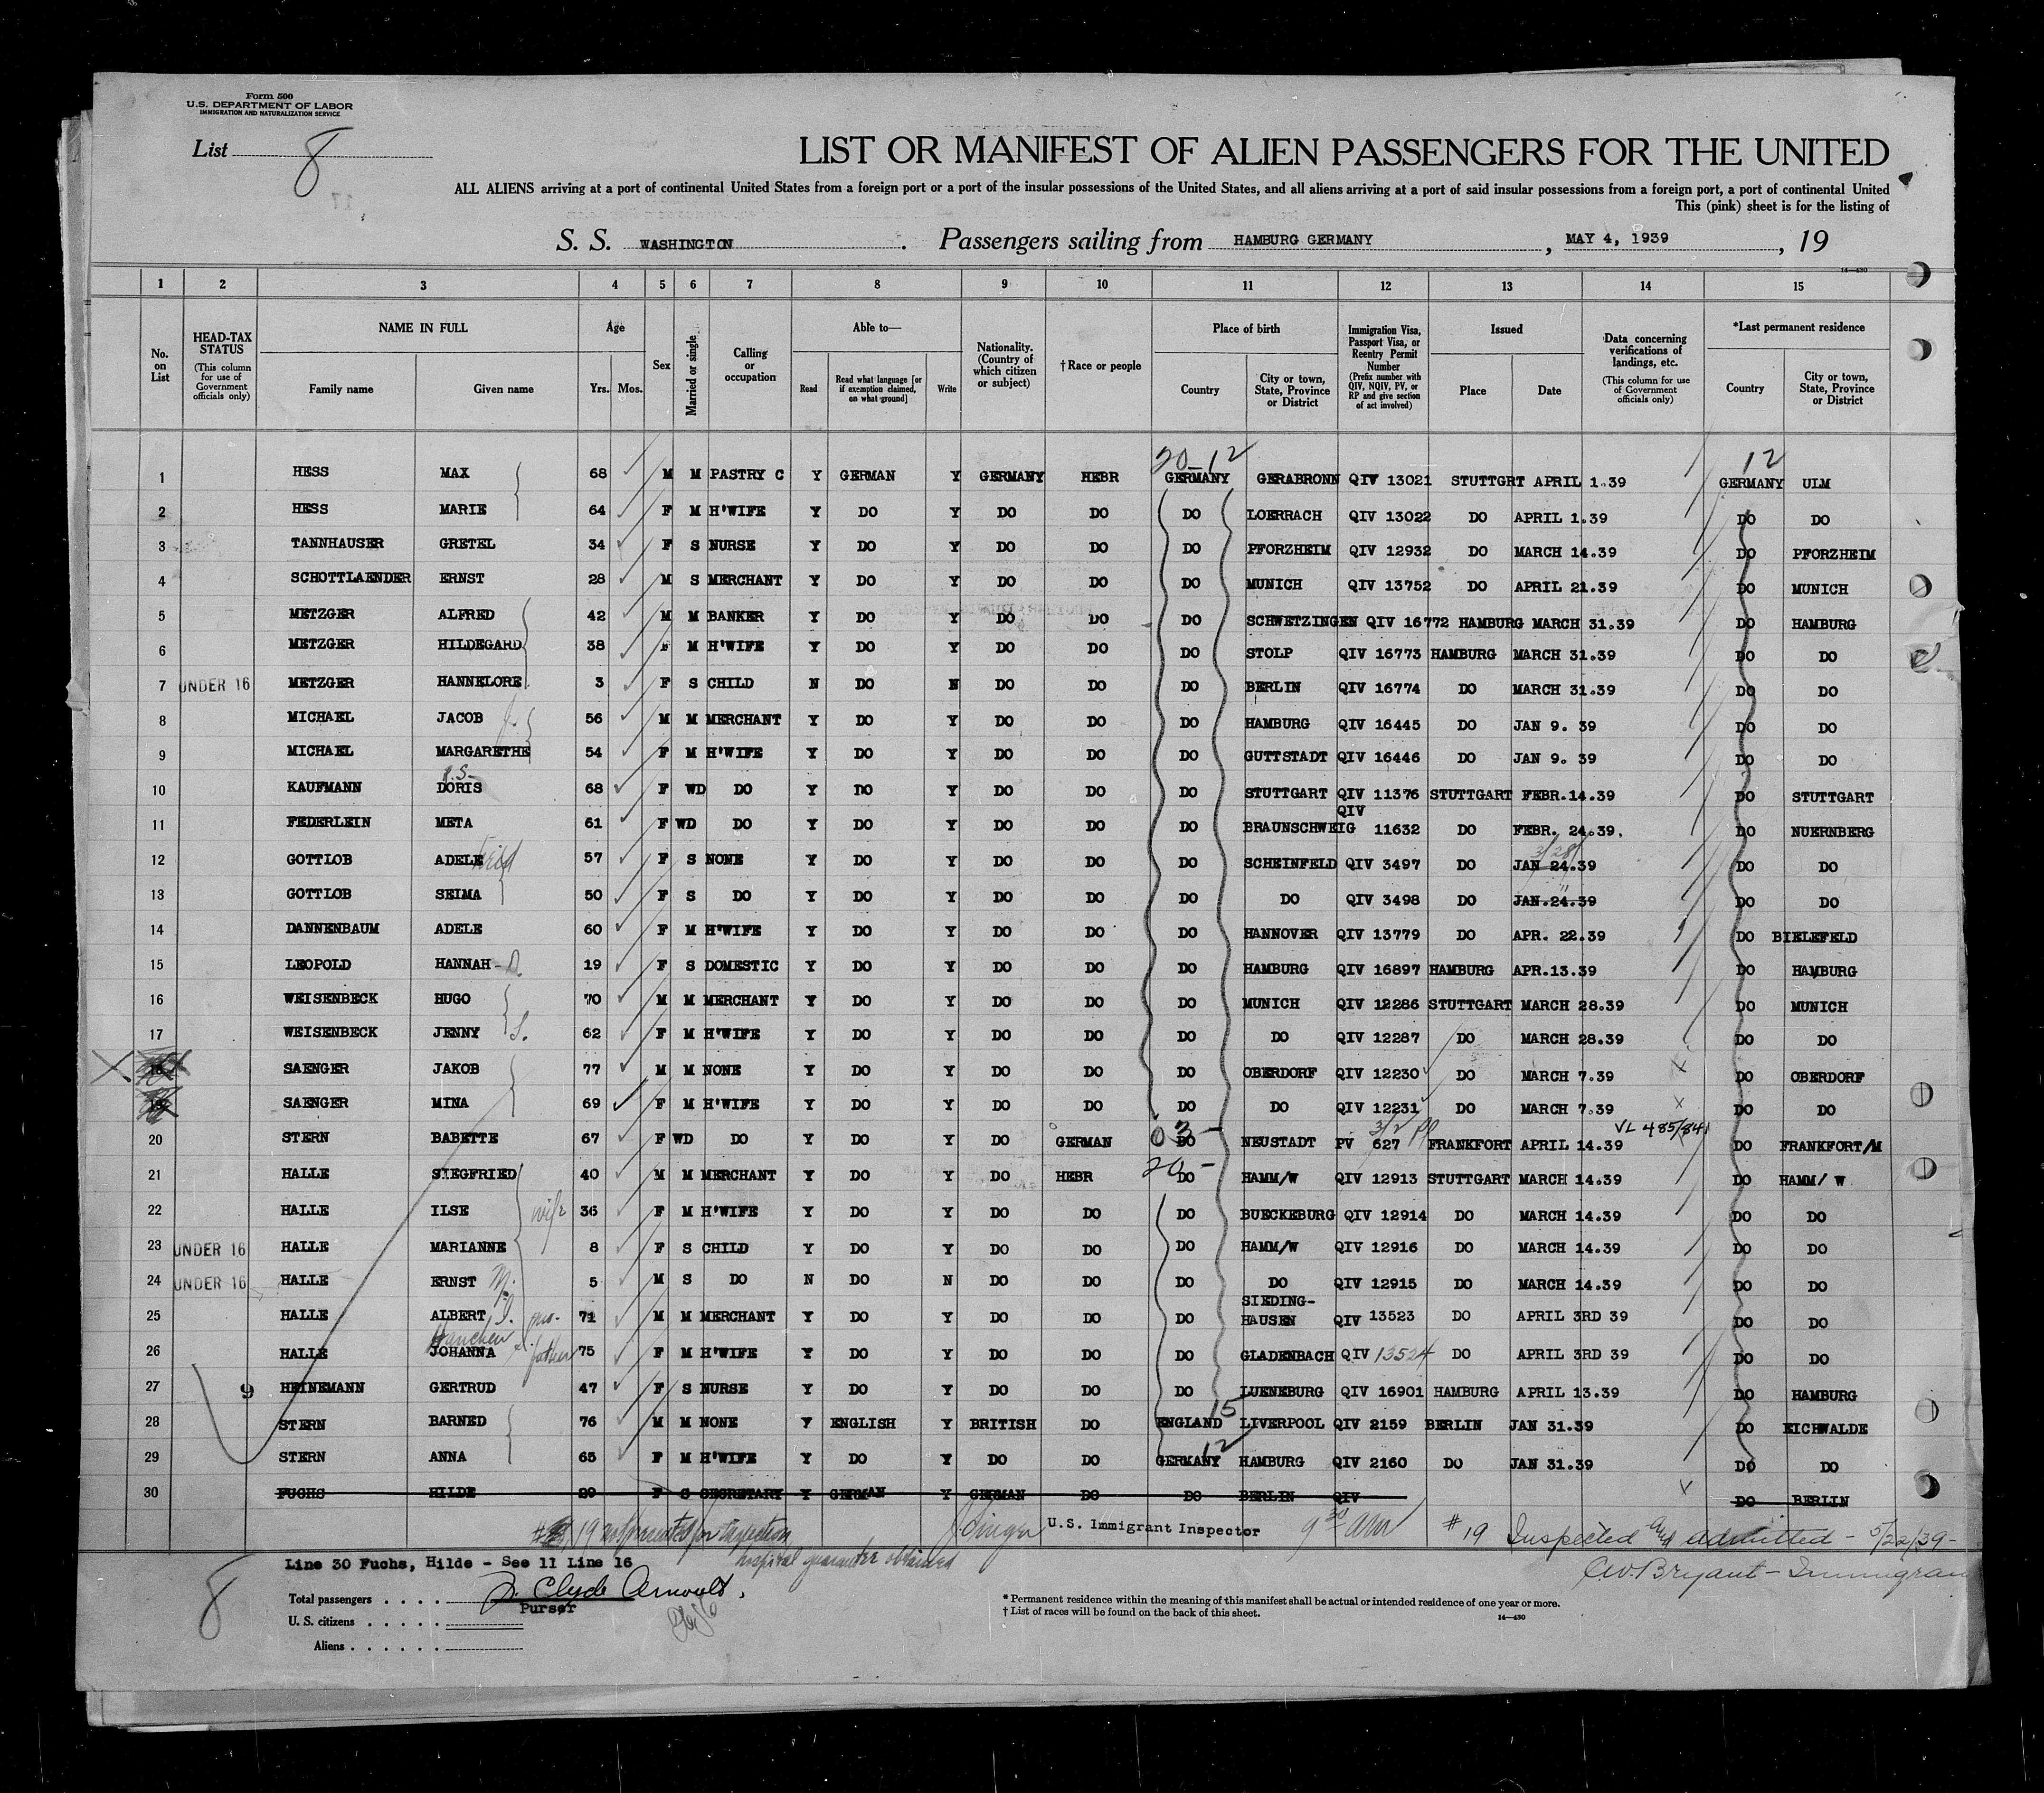 Form 500
U.S. DEPARTMENT OF LABOR
IMMIGRATION AND NATURALIZATION SERVICE
List 8
LIST OR MANIFEST OF ALIEN PASSENGERS FOR THE UNITED
ALL ALIENS arriving at a port of continental United States from a foreign port or a port of the insular possessions of the United States, and all aliens arriving at a port of said insular possessions from a foreign port, a port of continental United
This (pink) sheet is for the listing of
S. S. WASHINGTON. Passengers sailing from HAMBURG GERMANY, MAY 4, 1939, 19
14—430
1 2 3 4 5 6 7 8 9 10 11 12 13 14 15
No. on List
HEAD-TAX STATUS (This column for use of Government officials only)
NAME IN FULL
Family name Given name
Age
Yrs. Mos.
Sex
Married or single
Calling or occupation
Able to—
Read
Read what language [or if exemption claimed, on what ground]
Write
Nationality. (Country of which citizen or subject)
† Race or people
Place of birth
Country
City or town, State, Province or District
Immigration Visa, Passport Visa, or Reentry Permit Number (Prefix number with QIV, NQIV, PV, or RP and give section of act involved)
Issued
Place Date
Data concerning verifications of landings, etc. (This column for use of Government officials only)
*Last permanent residence
Country
City or town, State, Province or District
20-12 12
1 HESS MAX 68 M M PASTRY C Y GERMAN Y GERMANY HEBR GERMANY GERABRONN QIV 13021 STUTTGRT APRIL 1.39 GERMANY ULM
2 HESS MARIE 64 F M H'WIFE Y DO Y DO DO DO LOERRACH QIV 13022 DO APRIL 1.39 DO DO
3 TANNHAUSER GRETEL 34 F S NURSE Y DO Y DO DO DO PFORZHEIM QIV 12932 DO MARCH 14.39 DO PFORZHEIM
4 SCHOTTLAENDER ERNST 28 M S MERCHANT Y DO Y DO DO DO MUNICH QIV 13752 DO APRIL 21.39 DO MUNICH
5 METZGER ALFRED 42 M M BANKER Y DO Y DO DO DO SCHWETZINGEN QIV 16772 HAMBURG MARCH 31.39 DO HAMBURG
6 METZGER HILDEGARD 38 F M H'WIFE Y DO Y DO DO DO STOLP QIV 16773 HAMBURG MARCH 31.39 DO DO
7 UNDER 16 METZGER HANNELORE 3 F S CHILD N DO N DO DO DO BERLIN QIV 16774 DO MARCH 31.39 DO DO
8 MICHAEL JACOB J. 56 M M MERCHANT Y DO Y DO DO DO HAMBURG QIV 16445 DO JAN 9. 39 DO DO
9 MICHAEL MARGARETHE 54 F M H'WIFE Y DO Y DO DO DO GUTTSTADT QIV 16446 DO JAN 9. 39 DO DO
10 KAUFMANN DORIS 68 F WD DO Y DO Y DO DO DO STUTTGART QIV 11376 STUTTGART FEBR.14.39 DO STUTTGART
11 FEDERLEIN META 61 F WD DO Y DO Y DO DO DO BRAUNSCHWEIG QIV 11632 DO FEBR. 24.39. DO NUERNBERG
12 GOTTLOB ADELE 57 F S NONE Y DO Y DO DO DO SCHEINFELD QIV 3497 DO JAN 24.39 3/28/ DO DO
13 GOTTLOB SEIMA 50 F S DO Y DO Y DO DO DO DO QIV 3498 DO JAN.24.39 " DO DO
14 DANNENBAUM ADELE 60 F M H'WIFE Y DO Y DO DO DO HANNOVER QIV 13779 DO APR. 22.39 DO BIELEFELD
15 LEOPOLD HANNAH - D. 19 F S DOMESTIC Y DO Y DO DO DO HAMBURG QIV 16897 HAMBURG APR.13.39 DO HAMBURG
16 WEISENBECK HUGO 70 M M MERCHANT Y DO Y DO DO DO MUNICH QIV 12286 STUTTGART MARCH 28.39 DO MUNICH
17 WEISENBECK JENNY S. 62 F M H'WIFE Y DO Y DO DO DO DO QIV 12287 DO MARCH 28.39 DO DO
X 18 SAENGER JAKOB 77 M M NONE Y DO Y DO DO DO OBERDORF QIV 12230 DO MARCH 7.39 X DO OBERDORF
19 SAENGER MINA 69 F M H'WIFE Y DO Y DO DO DO DO QIV 12231 DO MARCH 7.39 X DO DO
20 STERN BABETTE 67 F WD DO Y DO Y DO GERMAN 03 - DO NEUSTADT PV 627 3/2 PP FRANKFORT APRIL 14.39 VL 485/841 DO FRANKFORT/M
21 HALLE SIEGFRIED 40 M M MERCHANT Y DO Y DO HEBR 20 - DO HAMM/W QIV 12913 STUTTGART MARCH 14.39 DO HAMM/ W
22 HALLE ILSE wife 36 F M H'WIFE Y DO Y DO DO DO BUECKEBURG QIV 12914 DO MARCH 14.39 DO DO
23 UNDER 16 HALLE MARIANNE 8 F S CHILD Y DO Y DO DO DO HAMM/W QIV 12916 DO MARCH 14.39 DO DO
24 UNDER 16 HALLE ERNST M. 5 M S DO N DO N DO DO DO DO QIV 12915 DO MARCH 14.39 DO DO
25 HALLE ALBERT 71 M M MERCHANT Y DO Y DO DO DO SIEDING-HAUSEN QIV 13523 DO APRIL 3RD 39 DO DO
26 HALLE JOHANNA Hanchen father 75 F M H'WIFE Y DO Y DO DO DO GLADENBACH QIV 13524 DO APRIL 3RD 39 DO DO
27 9 HEINEMANN GERTRUD 47 F S NURSE Y DO Y DO DO DO LUENEBURG QIV 16901 HAMBURG APRIL 13.39 DO HAMBURG
28 STERN BARNED 76 M M NONE Y ENGLISH Y BRITISH DO ENGLAND 15 LIVERPOOL QIV 2159 BERLIN JAN 31.39 DO EICHWALDE
29 STERN ANNA 65 F M H'WIFE Y DO Y DO DO GERMANY 12 HAMBURG QIV 2160 DO JAN 31.39 DO DO
30 FUCHS HILDE 29 F S SECRETARY Y GERMAN Y GERMAN DO DO BERLIN QIV X DO BERLIN
19 not presented for inspection U.S. Immigrant Inspector 9 30 AM #19 Inspected and admitted - 5/22/39 -
hospital guarantee obtained C.W. Bryant - Immigran
Line 30 Fuchs, Hilde - See 11 Line 16
8
Total passengers . . . . J. Clyde Arnoult,
Purser
U. S. citizens . . . . .
Aliens . . . . . .
* Permanent residence within the meaning of this manifest shall be actual or intended residence of one year or more.
† List of races will be found on the back of this sheet.
14—430